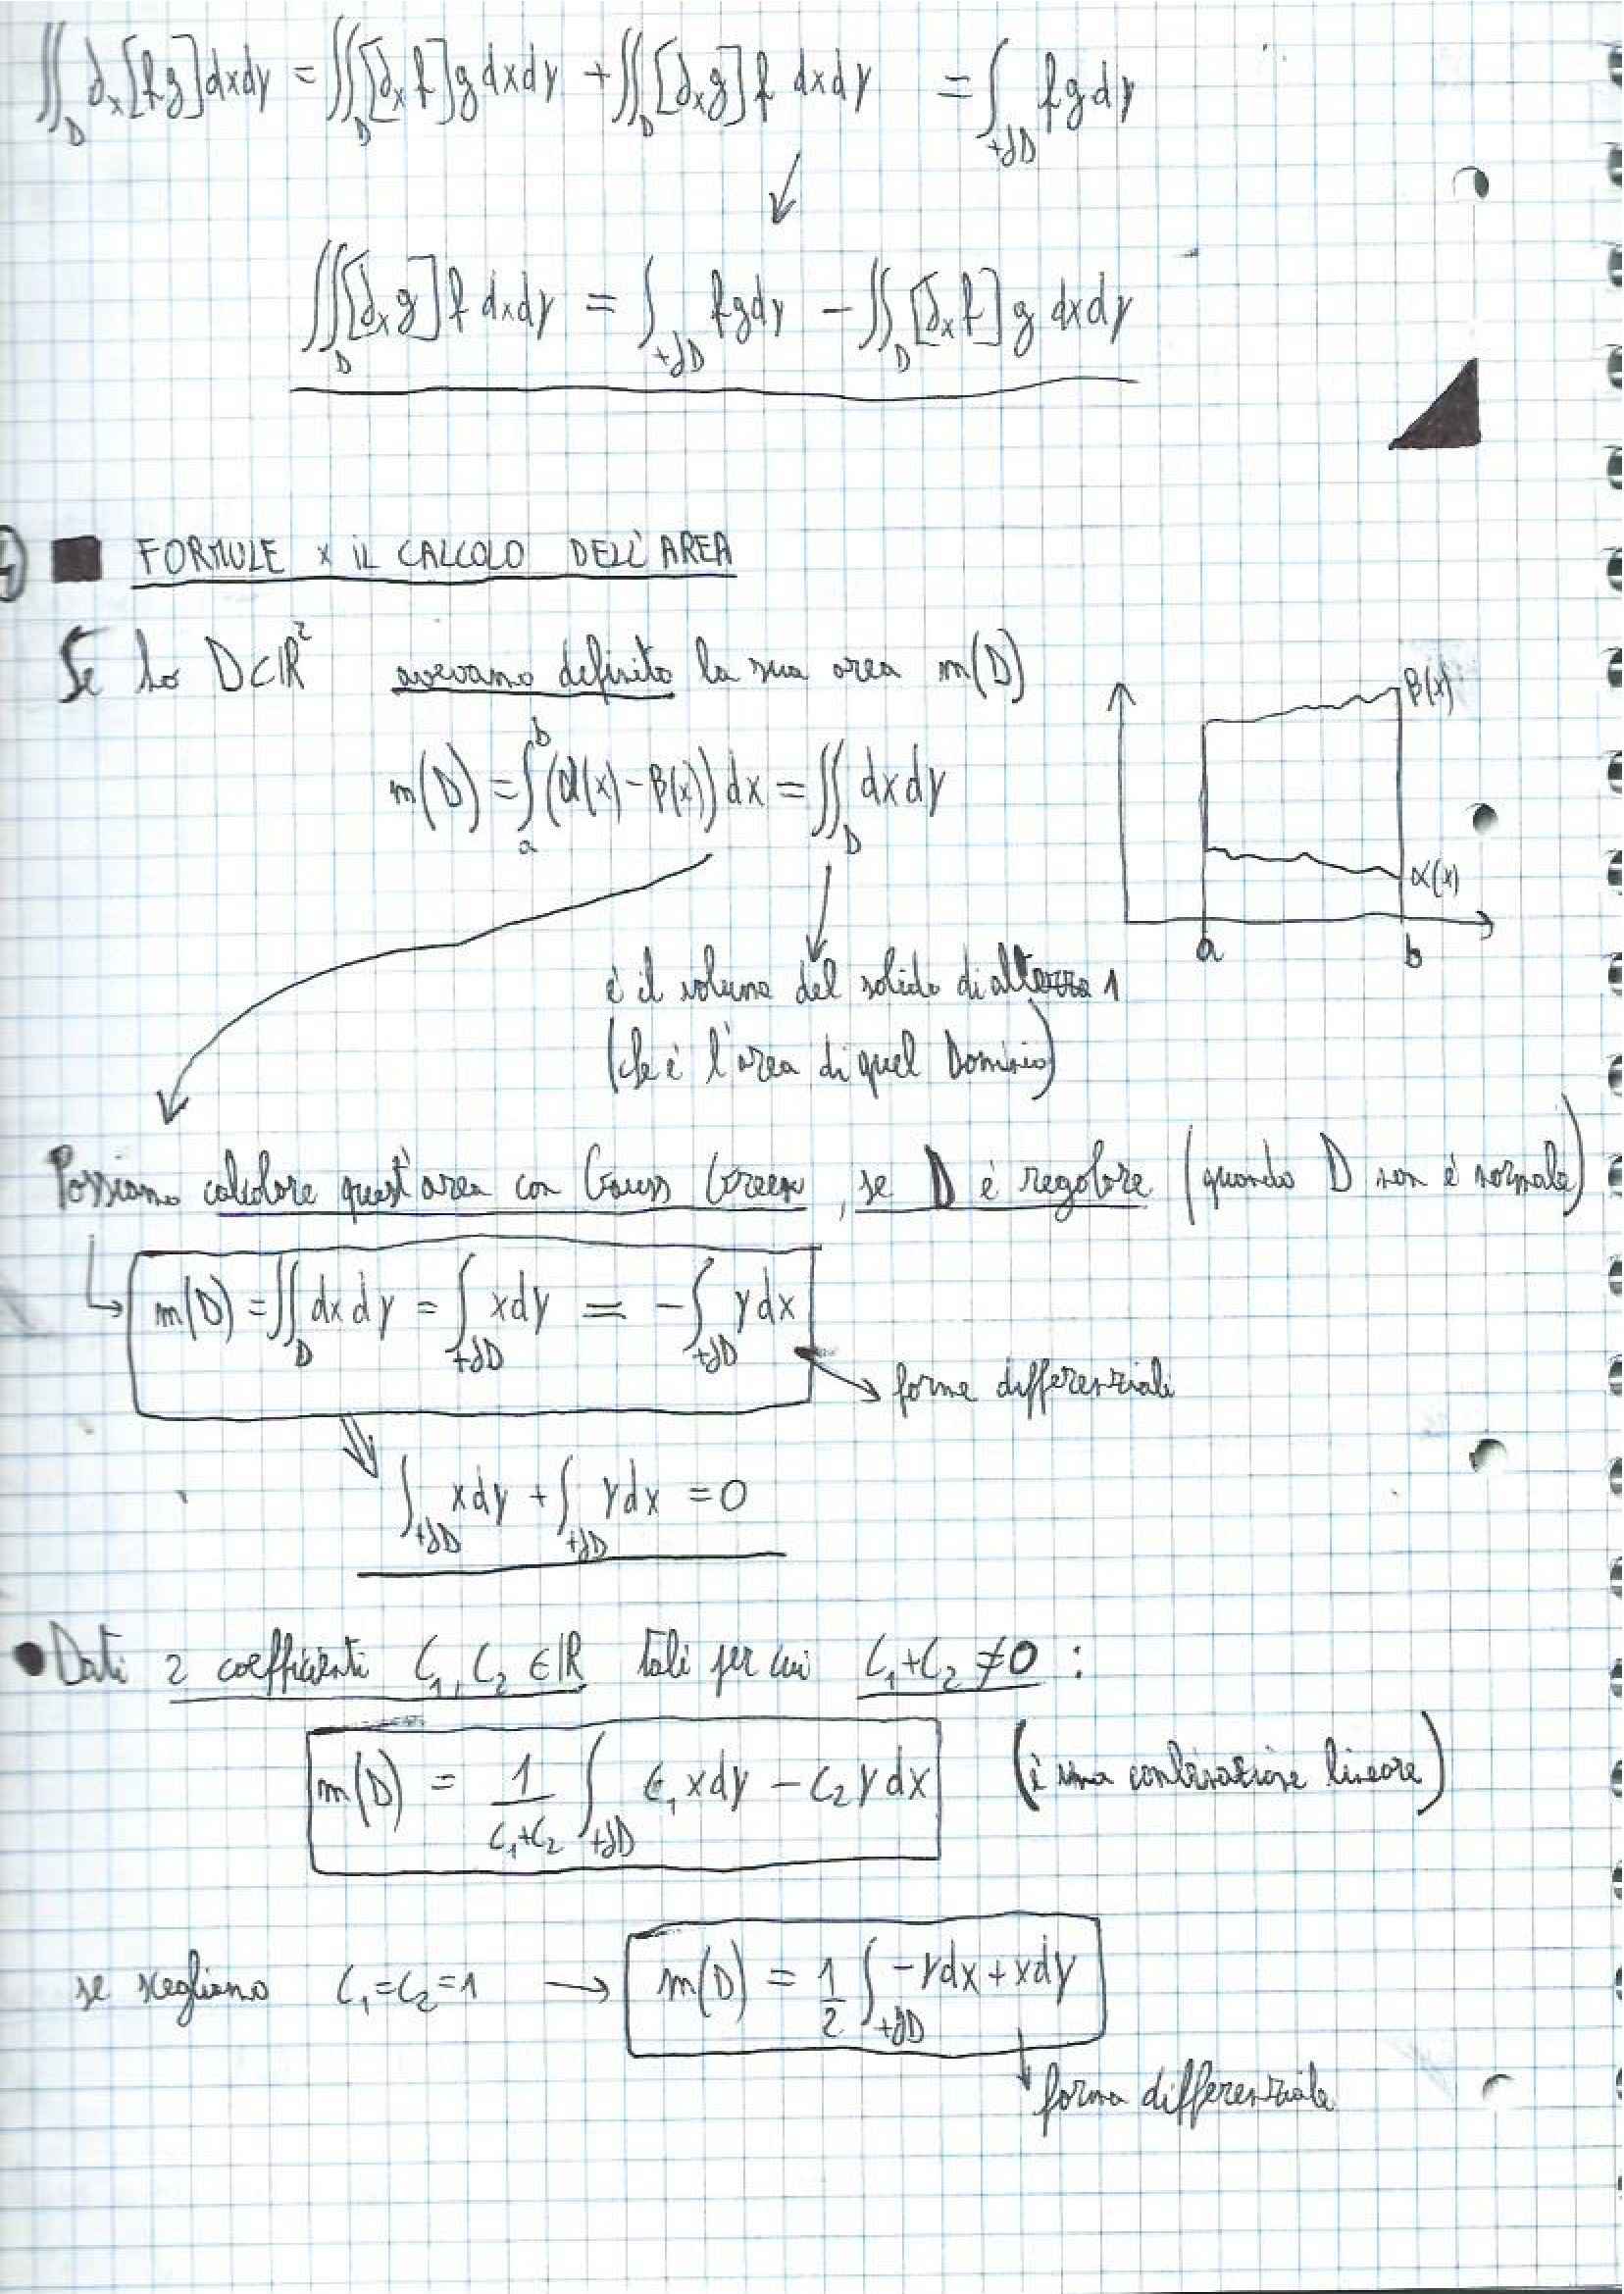 ∬_D ∂x[fg]dxdy = ∬_D [∂x f]g dxdy + ∬_D [∂x g] f dxdy = ∫_{+∂D} fgdy
∬_D [∂x g] f dxdy = ∫_{+∂D} fgdy - ∬_D [∂x f] g dxdy
FORMULE x IL CALCOLO DELL'AREA
Se ho D⊂ℝ² avevamo definito la sua area m(D)
β(x)
m(D) = ∫_a^b (α(x) - β(x)) dx = ∬_D dxdy
α(x)
a b
è il volume del solido di altezza 1
(che è l'area di quel Dominio)
Possiamo calcolare quest'area con Gauss Green, se D è regolare (quando D non è normale)
m(D) = ∬_D dxdy = ∫_{+∂D} xdy = -∫_{+∂D} ydx
forme differenziali
∫_{+∂D} xdy + ∫_{+∂D} ydx = 0
• Dati 2 coefficienti C₁, C₂ ∈ ℝ tali per cui C₁+C₂ ≠ 0 :
m(D) = 1/(C₁+C₂) ∫_{+∂D} C₁xdy - C₂ydx (è una combinazione lineare)
se scegliamo C₁=C₂=1 → m(D) = 1/2 ∫_{+∂D} -ydx + xdy
forma differenziale